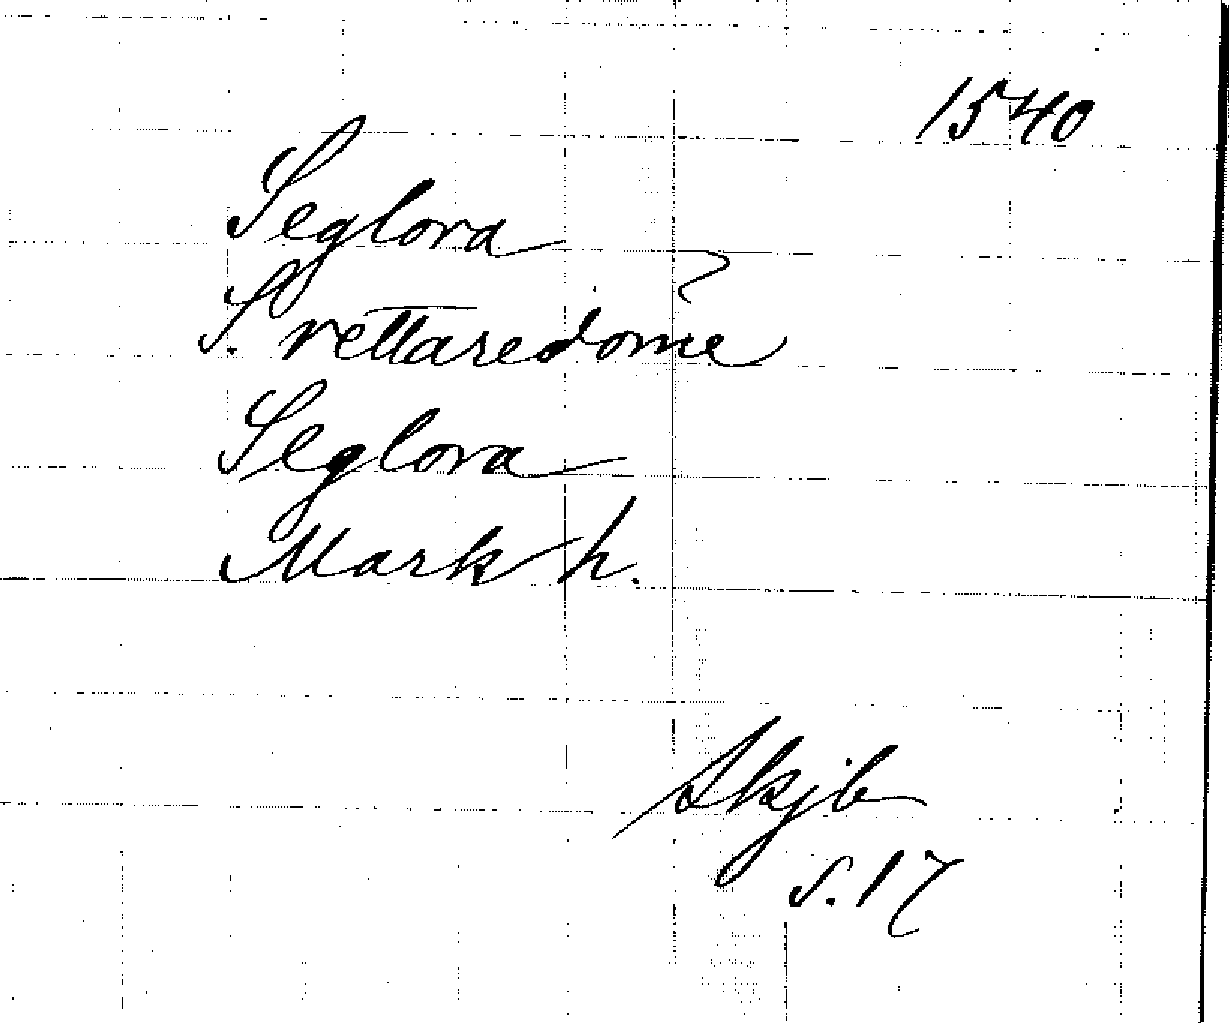 1540
Seglora
S. rettaredome
Seglora
Mark h.
Skjb
s. 17